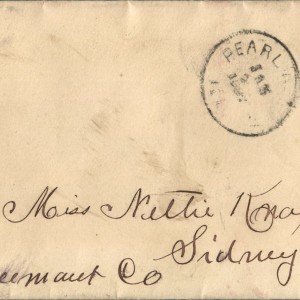 PEARL
JAN
Miss Nettie Kna
Sidney
eemont Co